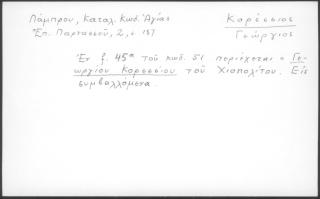 Λάμπρου, Καταλ. Κωδ. Ἁγίας
Καρέσσιος
Ἐπ. Παρνασσοῦ, 2, σ. 157
Γεώργιος
Ἐν f. 45α τοῦ κωδ. 51 περιέχεται « Γε-
ωργίου Κορεσσίου τοῦ Χιοπολίτου. Εἰς
συμβαλλόμενα.